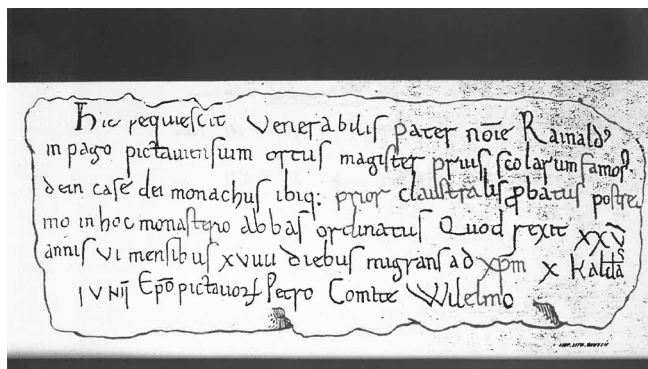 Hic requiescit venerabilis pater nōie Rainaldꝰ
in pago pictauiensium ortus magister prius scolarum famosꝰ
dein case dei monachus ibiq; prior claustralis ꝓbatus postre
mo in hoc monasterio abbas ordinatus Quod rexit xxv
annis vi mensibus xviiii diebus migrans ad xp̄m x kalds
IVNII Ep̄o pictauoꝝ Petro Comite Wilelmo